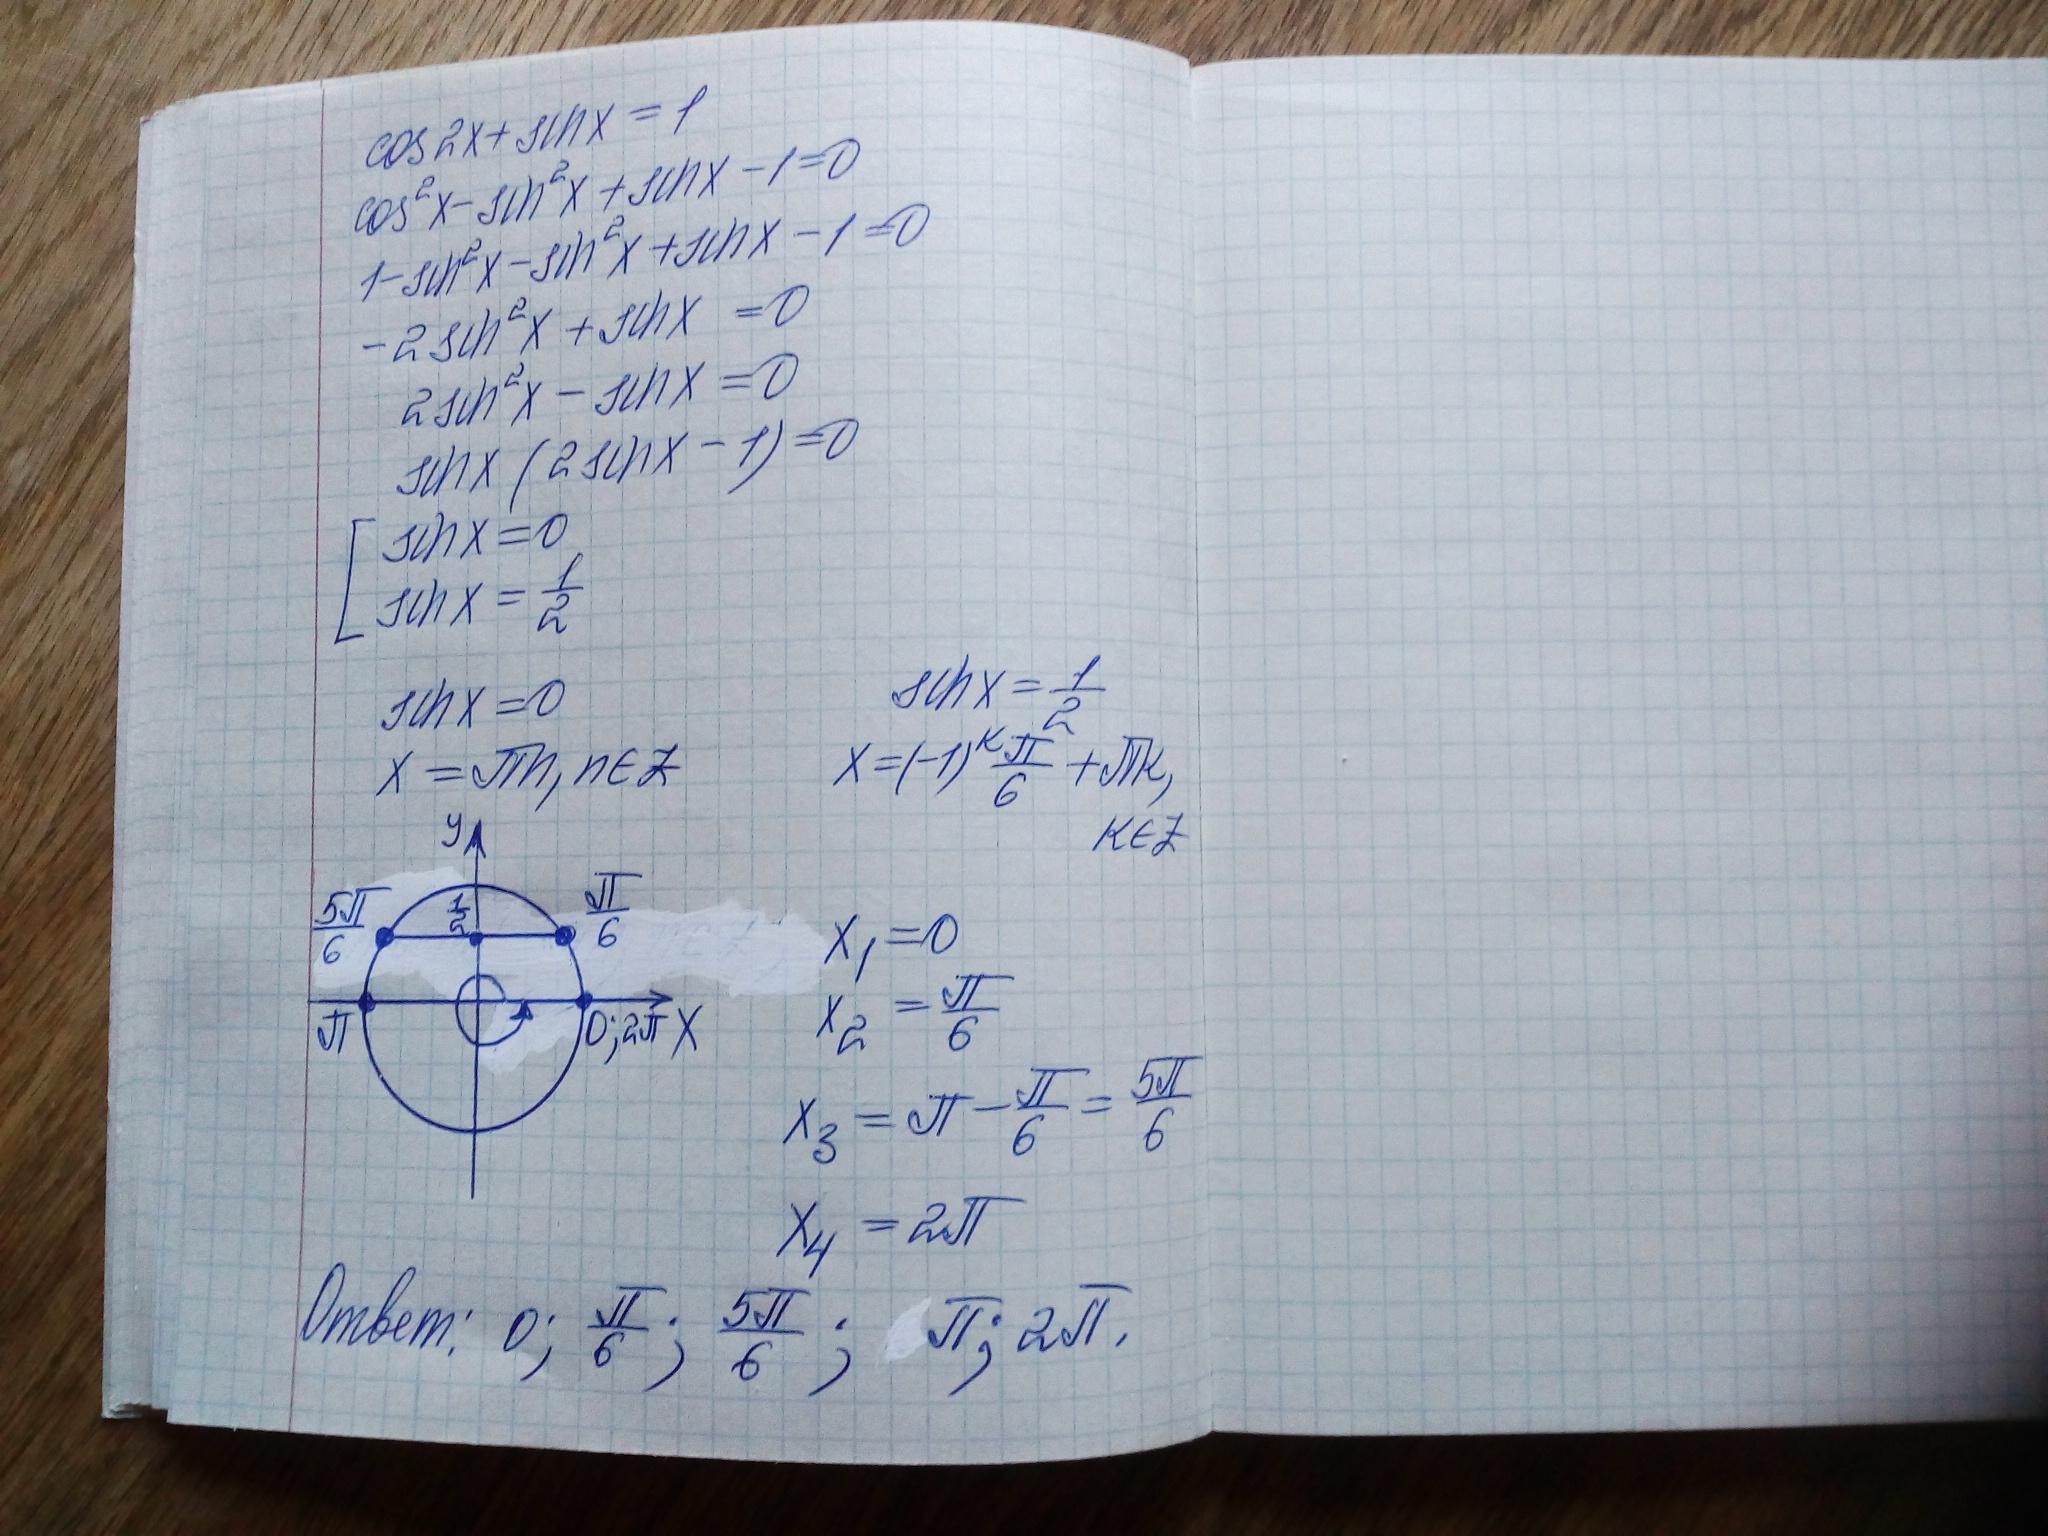 cos2x+sinx=1
cos²x-sin²x+sinx-1=0
1-sin²x-sin²x+sinx-1=0
-2sin²x+sinx=0
2sin²x-sinx=0
sinx(2sinx-1)=0
[ sinx=0
sinx=1/2
sinx=0
x=πn, n∈Z
sinx=1/2
x=(-1)^k π/6+πk,
k∈Z
y
5π/6 1/2 π/6
π 0;2π x
x₁=0
x₂=π/6
x₃=π-π/6=5π/6
x₄=2π
Ответ: 0; π/6; 5π/6; π; 2π.